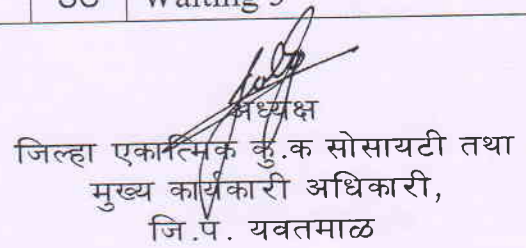 Waiting
अध्यक्ष
जिल्हा एकात्मिक कु.क सोसायटी तथा
मुख्य कार्यकारी अधिकारी,
जि.प. यवतमाळ